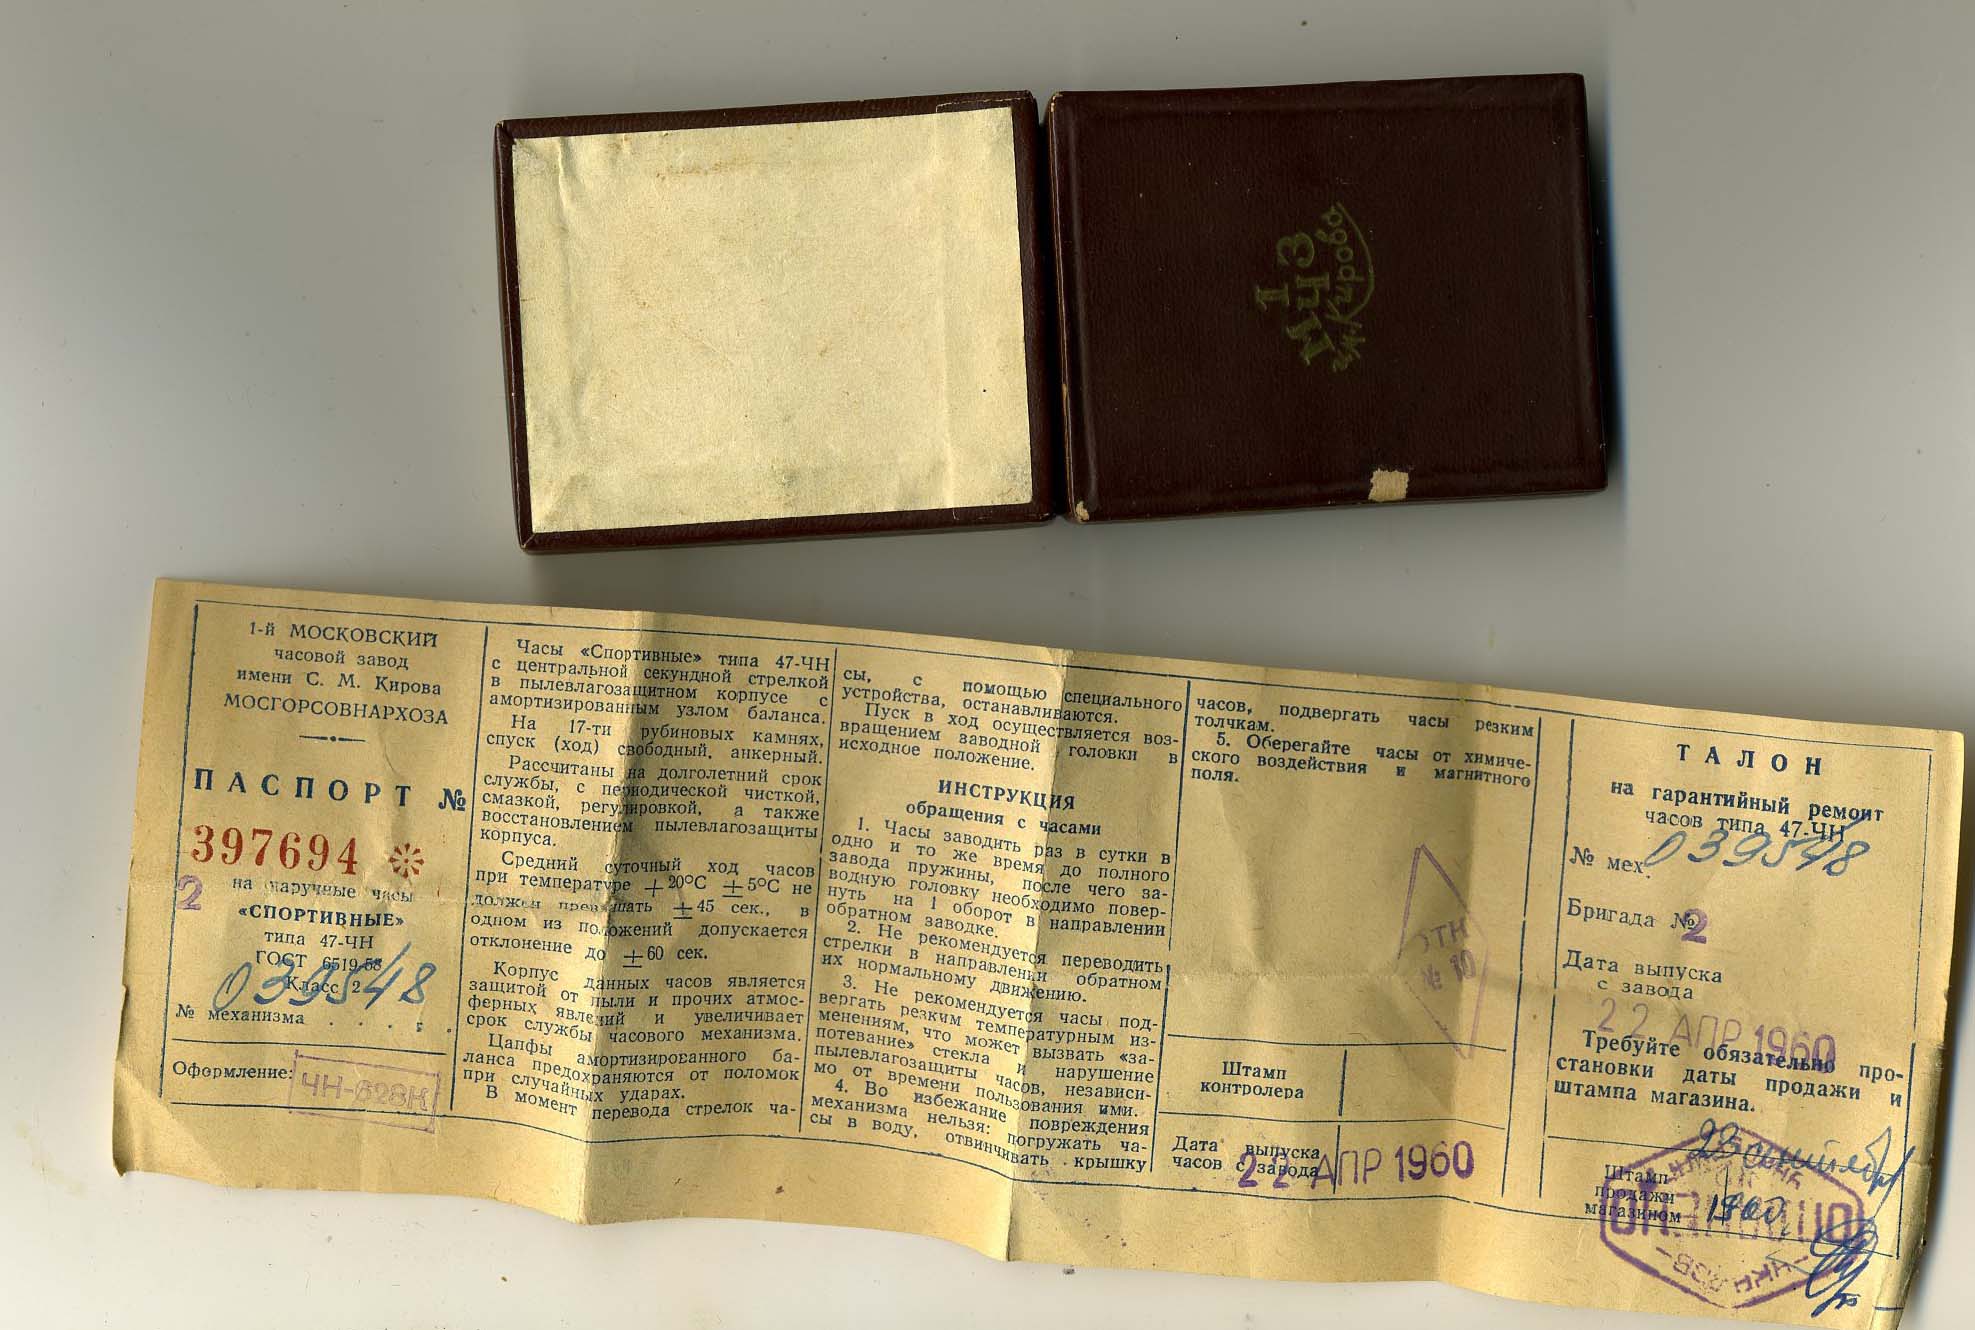 1
МЧЗ
им. Кирова
1-й МОСКОВСКИЙ
часовой завод
имени С. М. Кирова
МОСГОРСОВНАРХОЗА
ПАСПОРТ №
397694
2
на наручные часы
«СПОРТИВНЫЕ»
типа 47-ЧН
ГОСТ 6519-58
Класс 2
039548
№ механизма . . . .
Оформление:
ЧН-628К
Часы «Спортивные» типа 47-ЧН
с центральной секундной стрелкой
в пылевлагозащитном корпусе с
амортизированным узлом баланса.
На 17-ти рубиновых камнях,
спуск (ход) свободный, анкерный.
Рассчитаны на долголетний срок
службы, с периодической чисткой,
смазкой, регулировкой, а также
восстановлением пылевлагозащиты
корпуса.
Средний суточный ход часов
при температуре +20°С ±5°С не
должен превышать ±45 сек., в
одном из положений допускается
отклонение до ±60 сек.
Корпус данных часов является
защитой от пыли и прочих атмос-
ферных явлений и увеличивает
срок службы часового механизма.
Цапфы амортизированного ба-
ланса предохраняются от поломок
при случайных ударах.
В момент перевода стрелок ча-
сы, с помощью специального
устройства, останавливаются.
Пуск в ход осуществляется воз-
вращением заводной головки в
исходное положение.
ИНСТРУКЦИЯ
обращения с часами
1. Часы заводить раз в сутки в
одно и то же время до полного
завода пружины, после чего за-
водную головку необходимо повер-
нуть на 1 оборот в направлении
обратном заводке.
2. Не рекомендуется переводить
стрелки в направлении обратном
их нормальному движению.
3. Не рекомендуется часы под-
вергать резким температурным из-
менениям, что может вызвать «за-
потевание» стекла и нарушение
пылевлагозащиты часов, независи-
мо от времени пользования ими.
4. Во избежание повреждения
механизма нельзя: погружать ча-
сы в воду, отвинчивать крышку
часов, подвергать часы резким
толчкам.
5. Оберегайте часы от химиче-
ского воздействия и магнитного
поля.
№ 10
Штамп
контролера
Дата выпуска
часов с завода
22 АПР 1960
ТАЛОН
на гарантийный ремонт
часов типа 47-ЧН
№ мех. 039548
Бригада № 2
Дата выпуска
с завода
22 АПР 1960
Требуйте обязательно про-
становки даты продажи и
штампа магазина.
Штамп
продажи
магазином
23 сентября
1960